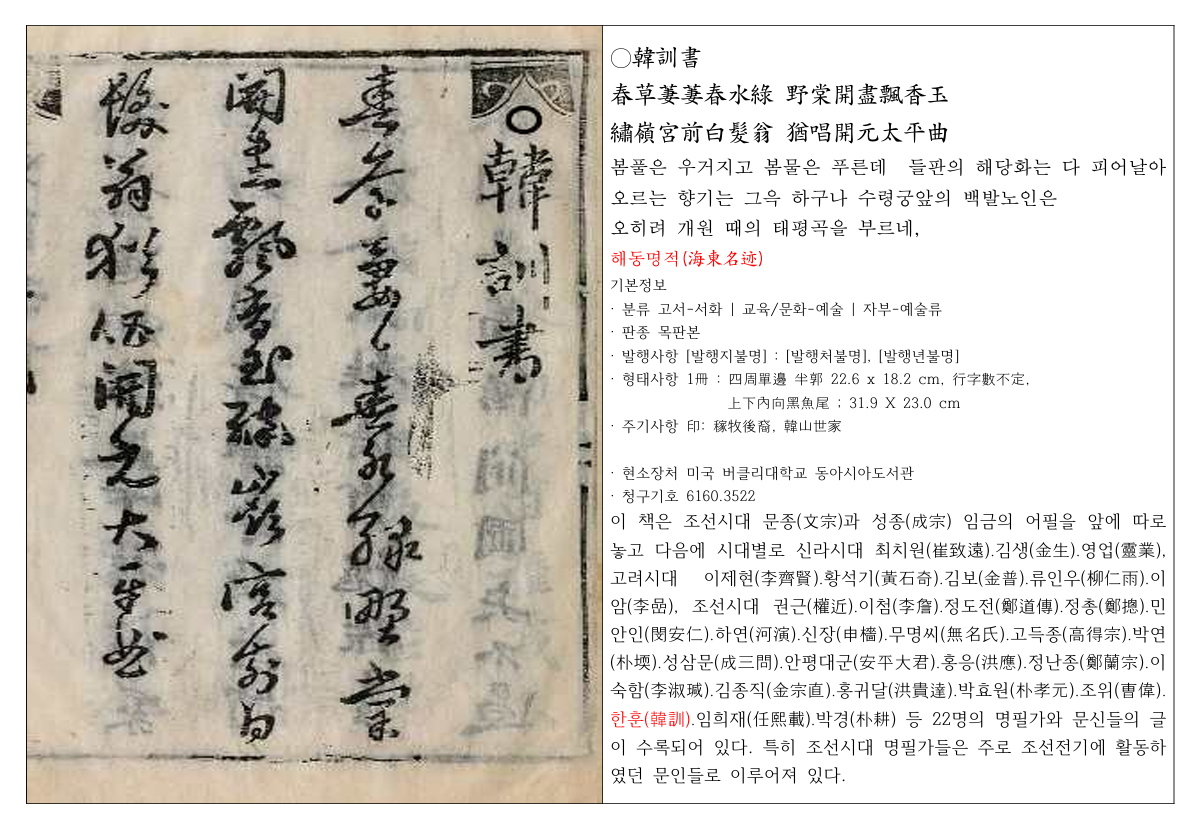 ○韓訓書
春草萋〻春水綠野棠
開盡飄香玉繡嶺宮前白
髮翁猶唱開元大平曲
○韓訓書
春草萋萋春水綠 野棠開盡飄香玉
繡嶺宮前白髮翁 猶唱開元太平曲
봄풀은 우거지고 봄물은 푸른데 들판의 해당화는 다 피어날아
오르는 향기는 그윽 하구나 수령궁앞의 백발노인은
오히려 개원 때의 태평곡을 부르네,
해동명적(海東名迹)
기본정보
· 분류 고서-서화 | 교육/문화-예술 | 자부-예술류
· 판종 목판본
· 발행사항 [발행지불명] : [발행처불명], [발행년불명]
· 형태사항 1冊 : 四周單邊 半郭 22.6 x 18.2 cm, 行字數不定,
上下內向黑魚尾 ; 31.9 X 23.0 cm
· 주기사항 印: 稼牧後裔, 韓山世家
· 현소장처 미국 버클리대학교 동아시아도서관
· 청구기호 6160.3522
이 책은 조선시대 문종(文宗)과 성종(成宗) 임금의 어필을 앞에 따로
놓고 다음에 시대별로 신라시대 최치원(崔致遠).김생(金生).영업(靈業),
고려시대 이제현(李齊賢).황석기(黃石奇).김보(金普).류인우(柳仁雨).이
암(李嵒), 조선시대 권근(權近).이첨(李詹).정도전(鄭道傳).정총(鄭摠).민
안인(閔安仁).하연(河演).신장(申檣).무명씨(無名氏).고득종(高得宗).박연
(朴堧).성삼문(成三問).안평대군(安平大君).홍응(洪應).정난종(鄭蘭宗).이
숙함(李淑瑊).김종직(金宗直).홍귀달(洪貴達).박효원(朴孝元).조위(曺偉).
한훈(韓訓).임희재(任熙載).박경(朴耕) 등 22명의 명필가와 문신들의 글
이 수록되어 있다. 특히 조선시대 명필가들은 주로 조선전기에 활동하
였던 문인들로 이루어져 있다.